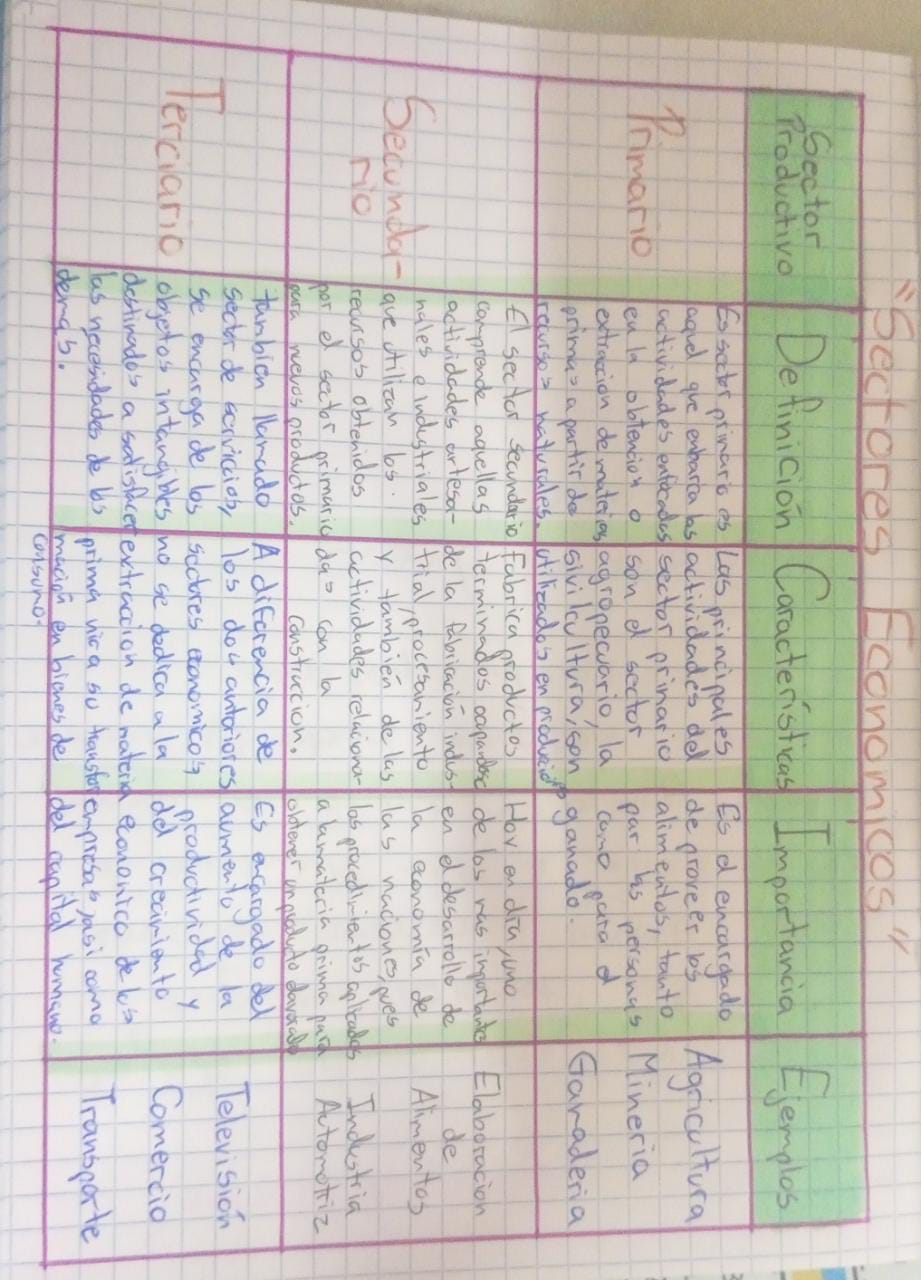 "Sectores Economicos"
Sector
Productivo
Definición
Características
Importancia
Ejemplos
Primario
Es sector primario es
aquel que enbarca las
actividades enfocadas
en la obtencion o
extraccion de materias
primas a partir de
recursos naturales.
Las principales
actividades del
sector primario
son el sector
agropecuario, la
silvicultura, son
utilizados en producción
Es el encargado
de proveer los
alimentos, tanto
par las personas
como para el
ganado.
Agricultura
Mineria
Ganaderia
Secunda-
rio
El sector secundario
comprende aquellas
actividades artesa-
nales e industriales
que utilizan los.
recursos obtenidos
por el sector primario
para nuevos productos.
Fabrica productos
terminados ocupandose
de la fabricación indus-
trial, procesamiento
y también de las
actividades relaciona-
das con la
construccion.
Hoy en día, uno
de los mas importantes
en el desarrollo de
la economía de
las naciones, pues
los procedimientos aplicados
a la materia prima para
obtener un producto
Elaboracion
de
Alimentos
Industria
Automotriz
Terciario
tambien llamado
sector de servicios,
se encarga de los
objetos intangibles
destinados a satisfacer
las necesidades de los
demas.
A diferencia de
los dos anteriores
sectores economicos
no se dedica a la
extraccion de materia
prima ni a su transfor
mación en bienes de
consumo.
Es encargado del
aumento de la
productividad y
del crecimiento
económico de las
empresas, asi como
del capital humano.
Televisión
Comercio
Transporte